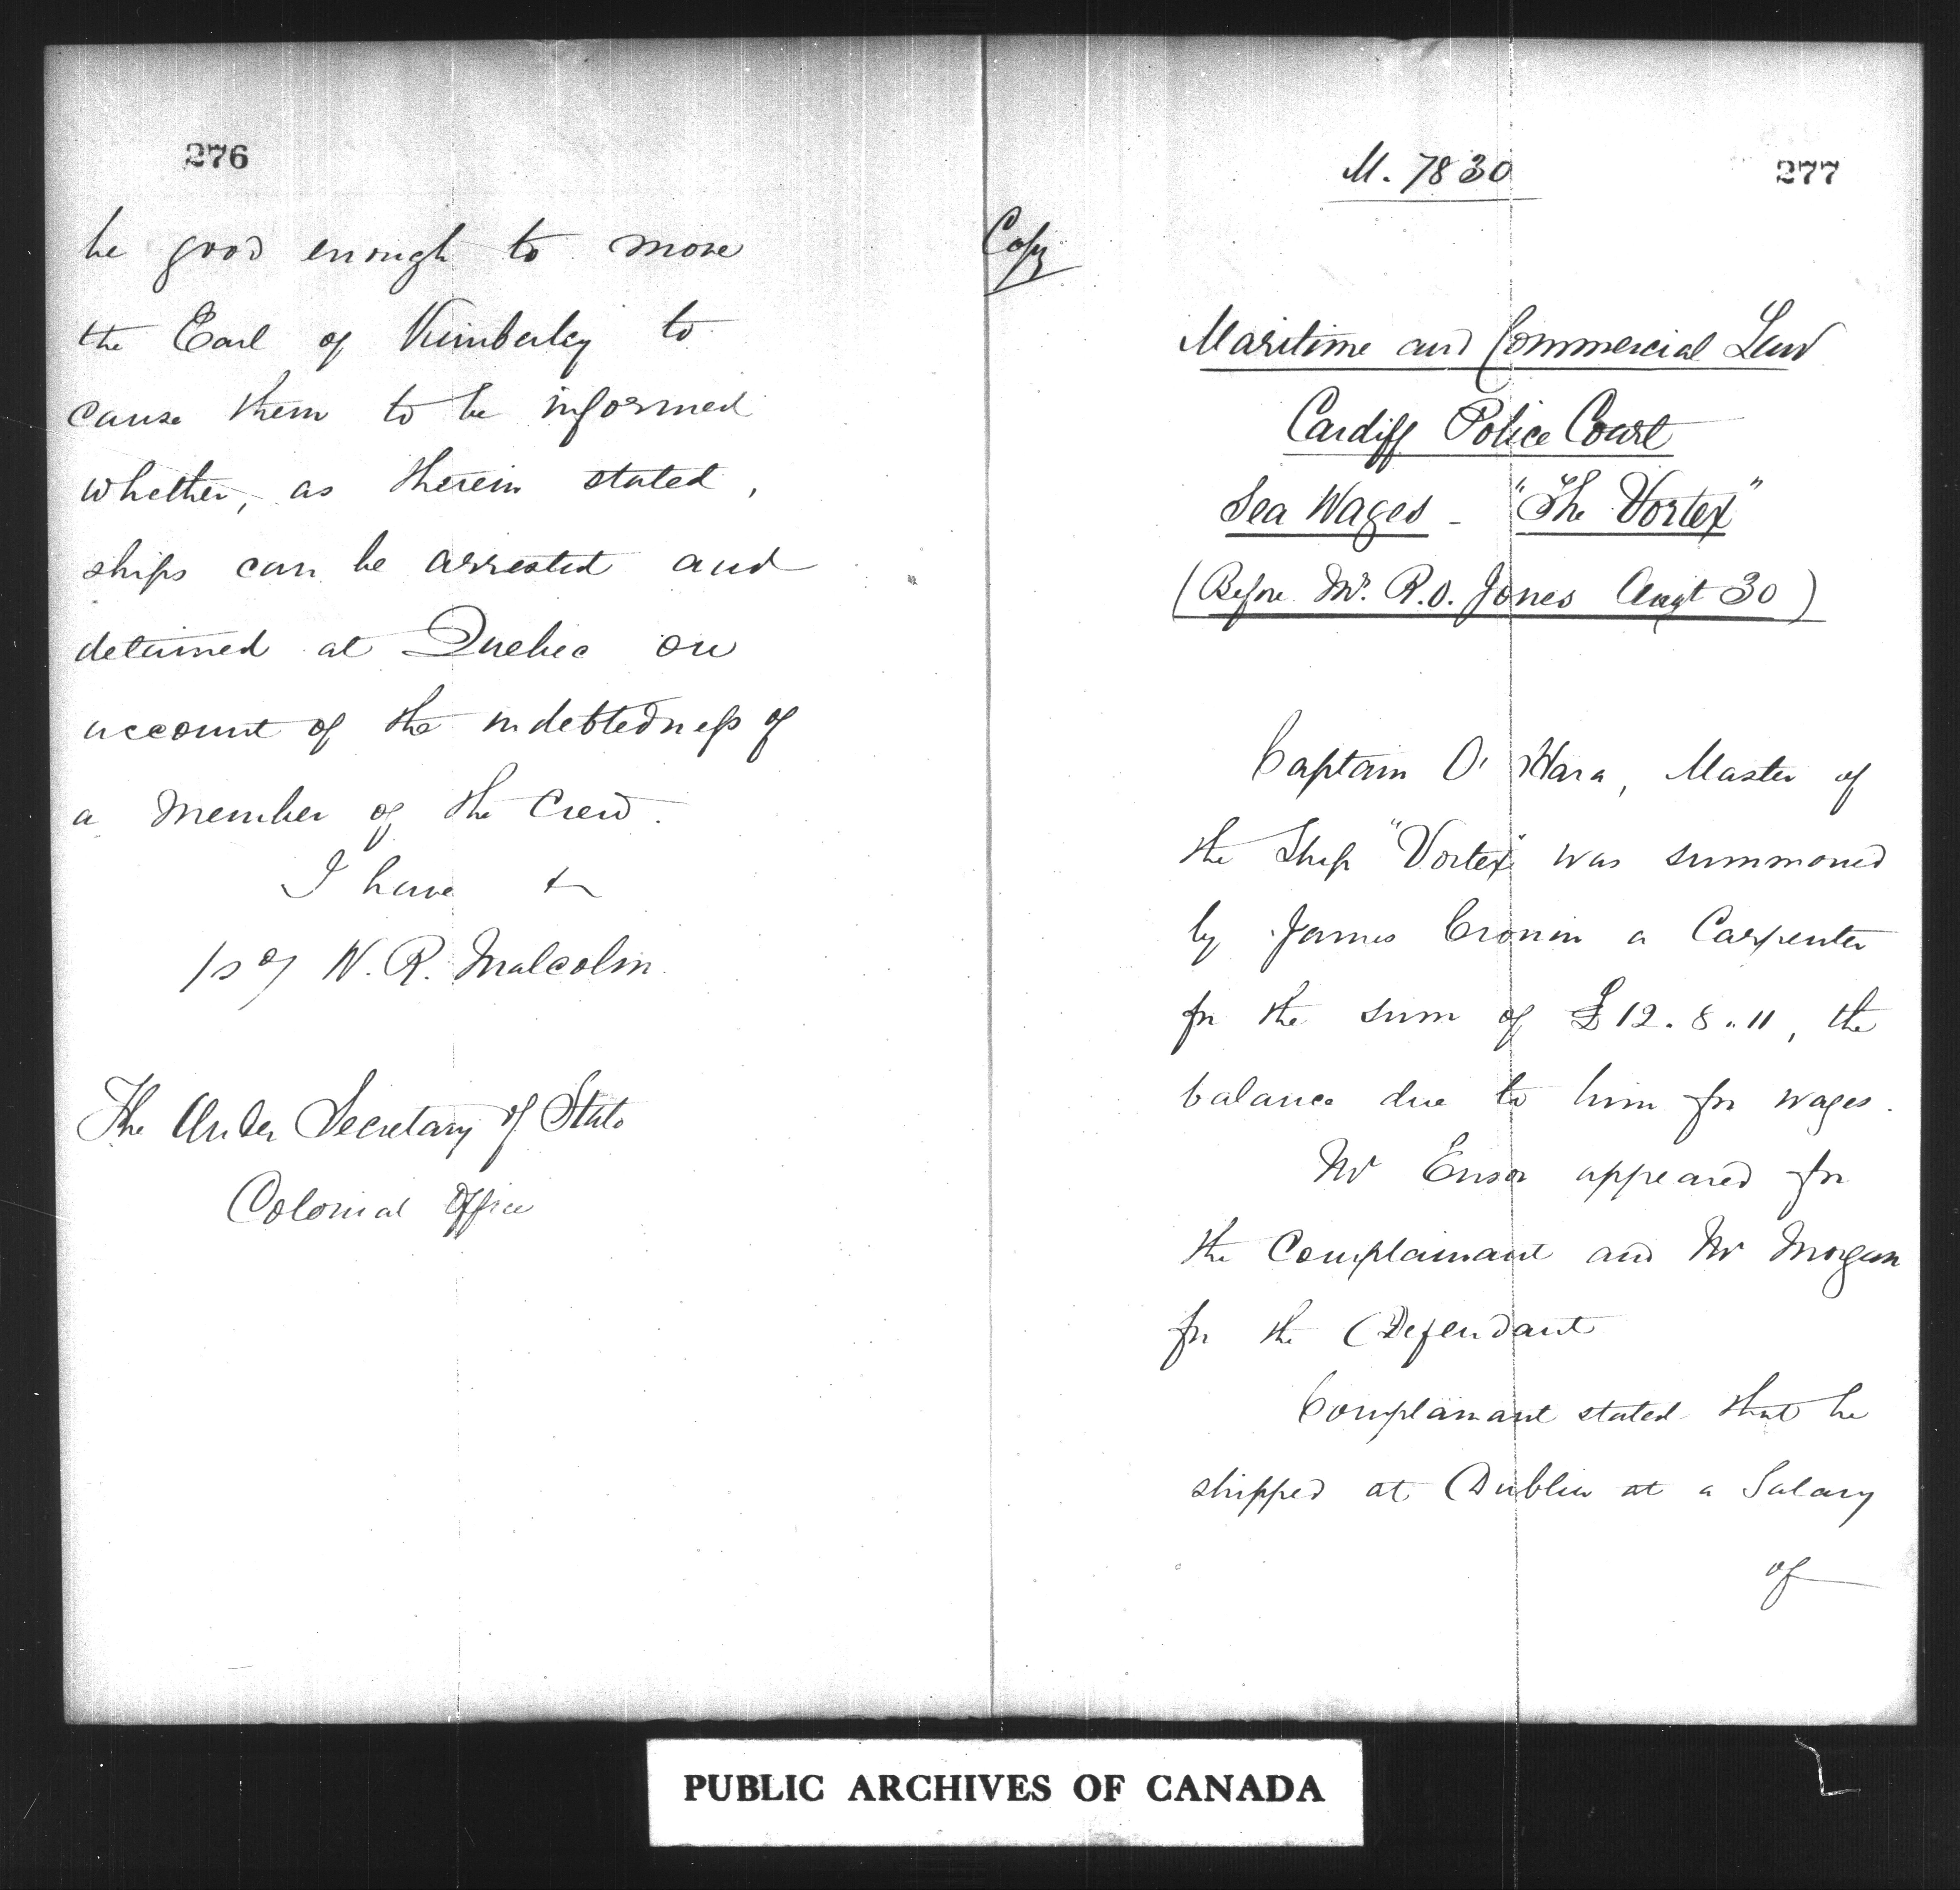 276
be good enough to move
the Earl of Kimberley to
cause them to be informed
whether, as therein stated,
ships can be arrested and
detained at Quebec on
account of the indebtedness of
a Member of the Crew.
I have &
/sd/ W. R. Malcolm
The Under Secretary of State
Colonial Office
M. 7830
277
Copy
Maritime and Commercial Law
Cardiff Police Court
Sea Wages - "The Vortex"
(Before Mr. R. O. Jones Augt 30)
Captain O'Hara, Master of
the Ship "Vortex" was summoned
by James Cronin a Carpenter
for the sum of £12.8.11, the
balance due to him for wages.
Mr Ensor appeared for
the Complainant and Mr Morgan
for the Defendant
Complainant stated that he
shipped at Dublin at a Salary
of
PUBLIC ARCHIVES OF CANADA